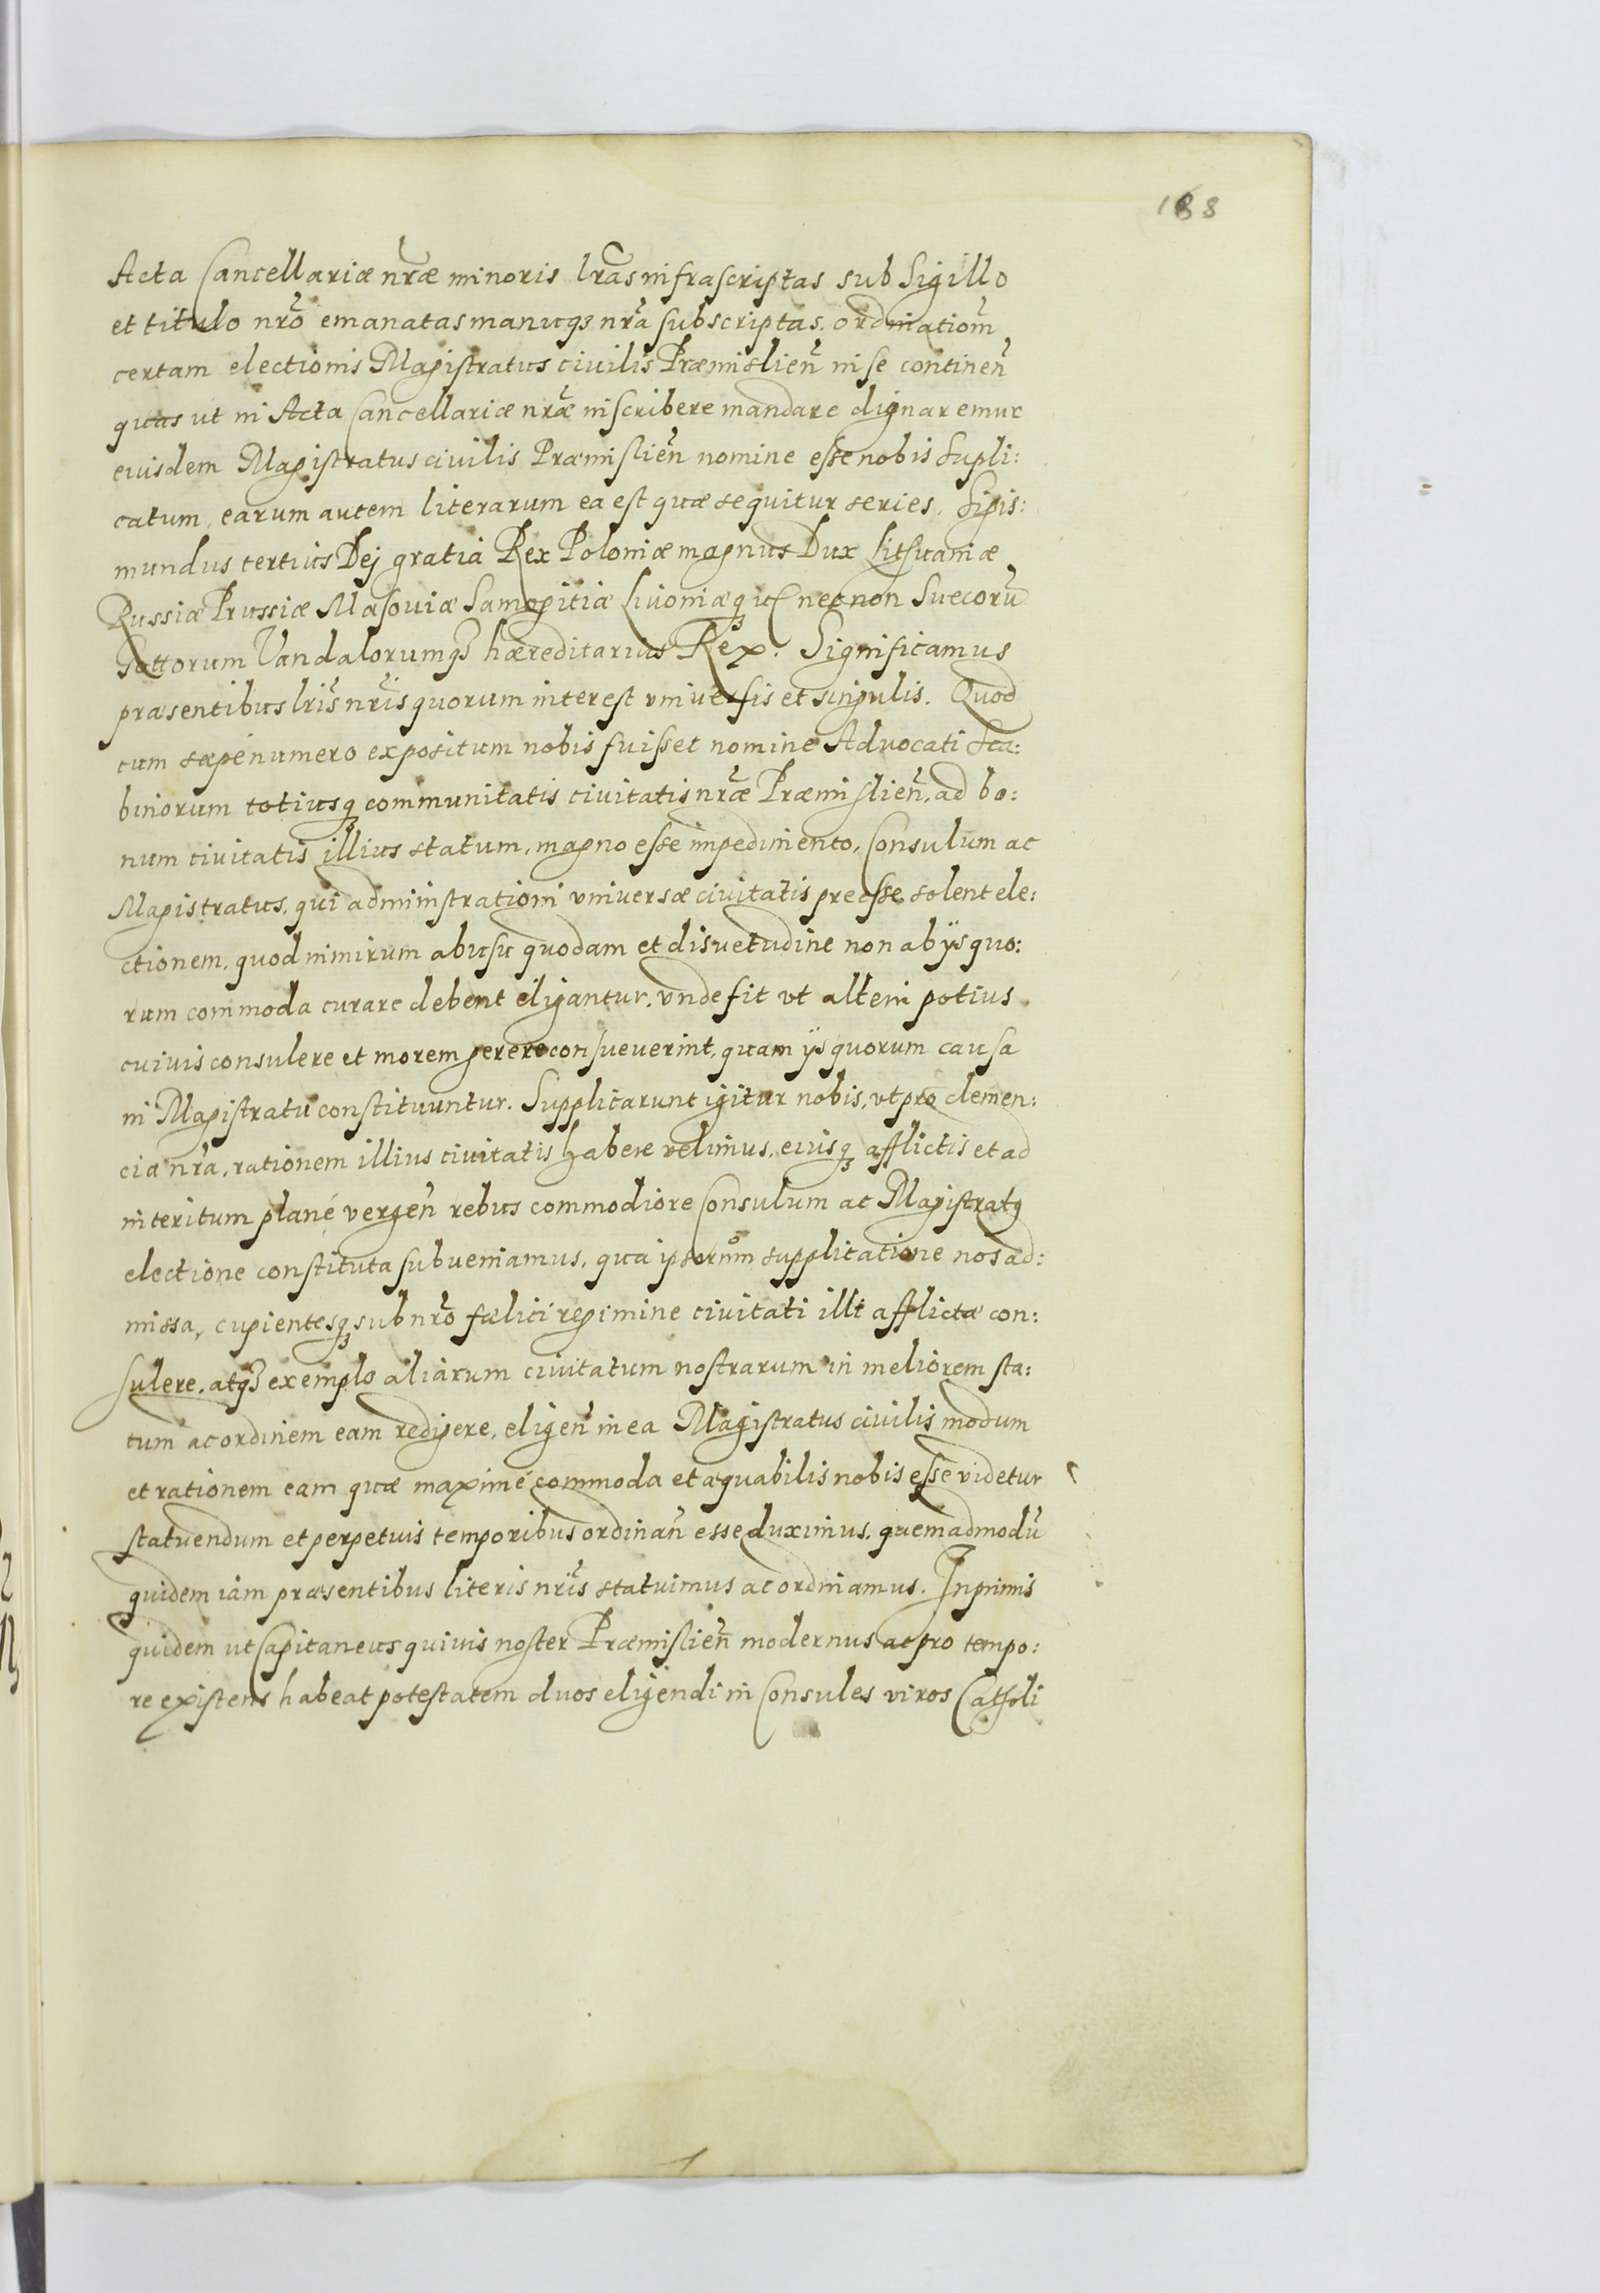 188
Acta Cancellariæ nr̃æ minoris lr̃as infrascriptas sub Sigillo
et titulo nr̃o emanatas manuq̃ nr̃a subscriptas, ordinatiom̃
certam electionis Magistratus civilis Præmislień in se contineñ
quas ut in Acta Cancellariæ nr̃æ inscribere mandare dignaremur
eiusdem Magistratus civilis Præmislień nomine esse nobis supli:
catum, earum autem literarum ea est quæ sequitur series. Sigis:
mundus tertius Dej gratia Rex Poloniæ magnus Dux Lithuaniæ
Russiæ Prussiæ Masoviæ Samogitiæ Livoniæq; necnon Suecorũ
Gottorum Vandalorumq̃ hæreditarius Rex. Significamus
præsentibus lr̃is nr̃is quorum interest universis et singulis. Quod
cum sæpenumero expositum nobis fuisset nomine Advocati Sca:
binorum totiusq; communitatis civitatis nr̃æ Præmislień, ad bo:
num civitatis illius statum, magno esse impedimento, Consulum ac
Magistratus, qui administrationi universæ civitatis preesse solent ele:
ctionem, quod nimirum abusu quodam et disuetudine non ab ÿs quo:
rum commoda curare debent eligantur, unde fit ut alteri potius
cuivis consulere et morem gerere consueverint, quam ÿs quorum causa
in Magistratu constituuntur. Supplicarunt igitur nobis, ut pro clemen:
cia nr̃a, rationem illius civitatis habere velimus, eiusq; afflictis et ad
interitum planè vergeñ rebus commodiore Consulum ac Magistratq
electione constituta subveniamus, qua ipsorum supplicatione nos ad:
missa, cupientesq; sub nr̃o fœlici regimine civitati illi afflictæ con:
sulere, atq̃ exemplo aliarum civitatum nostrarum in meliorem sta:
tum ac ordinem eam redigere, eligeñ in ea Magistratus civilis modum
et rationem eam quæ maximè commoda et æquabilis nobis esse videtur
statuendum et perpetuis temporibus ordinañ esse duximus, quemadmodũ
quidem iam præsentibus literis nr̃is statuimus ac ordinamus. Inprimis
quidem ut Capitaneus quivis noster Præmislień modernus ac pro tempo:
re existens habeat potestatem duos eligendi in Consules viros Catholi